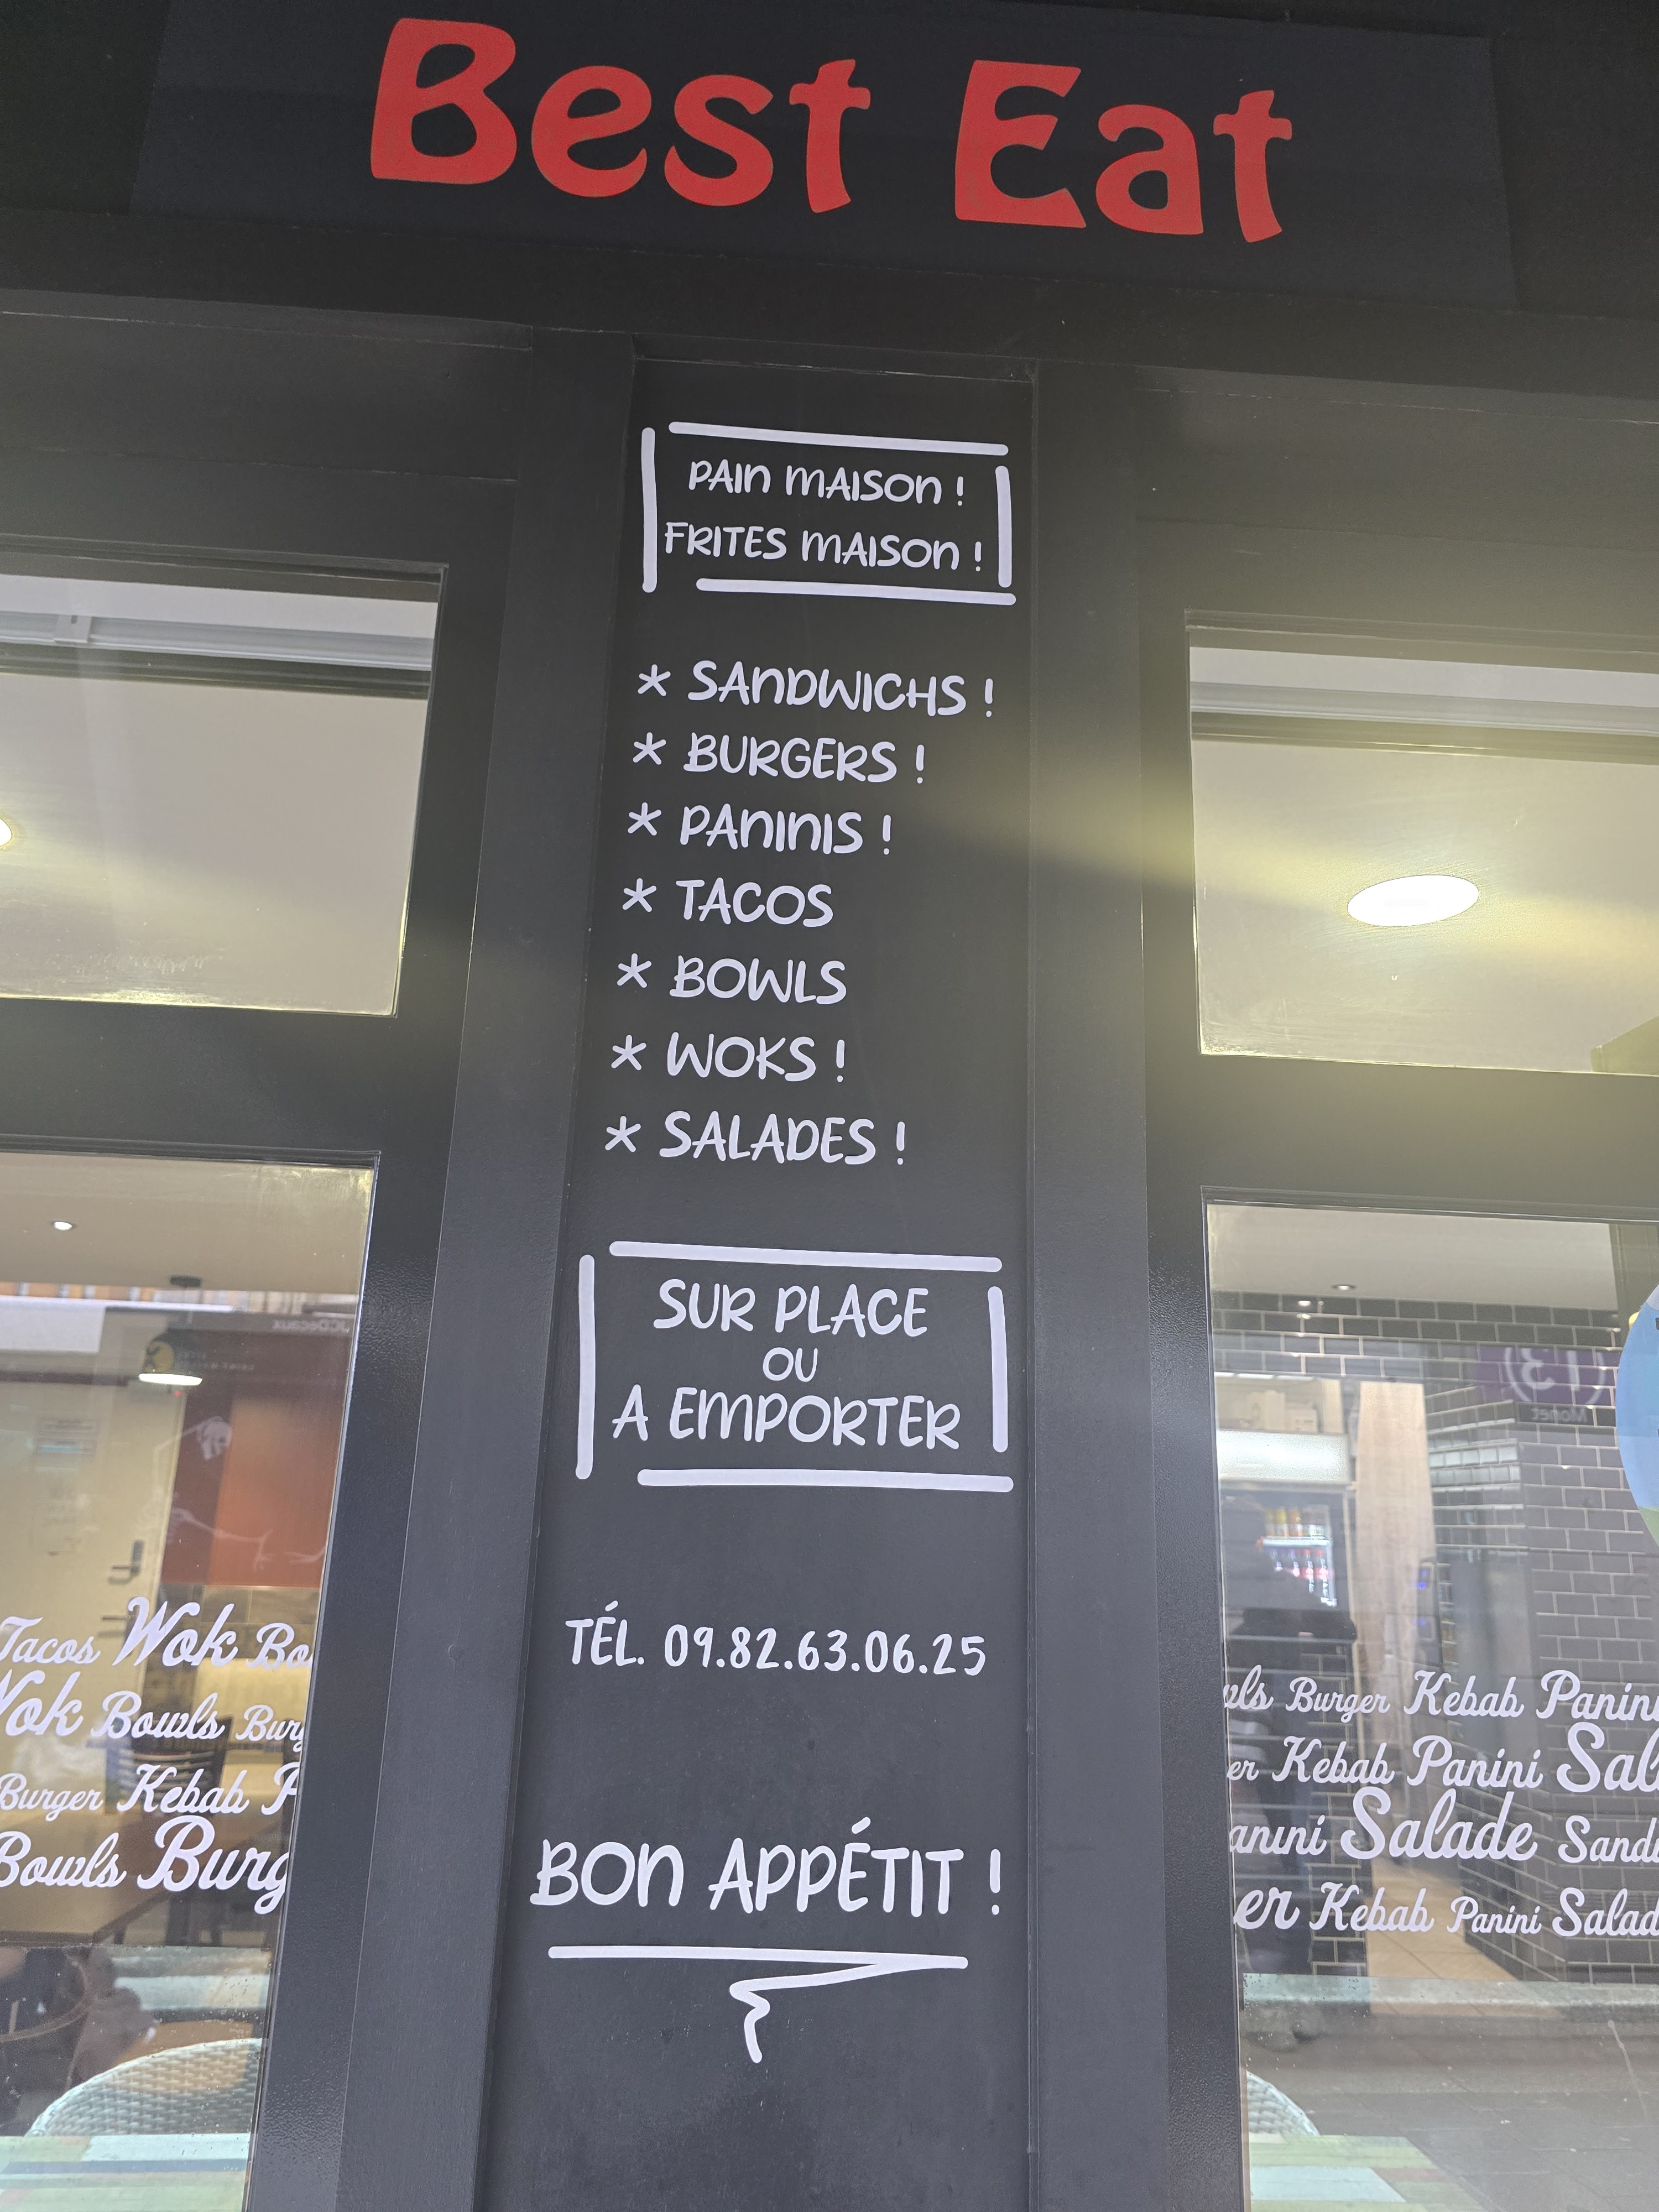 Best Eat
PAIN MAISON !
FRITES MAISON !
* SANDWICHS !
* BURGERS !
* PANINIS !
* TACOS
* BOWLS
* WOKS !
* SALADES !
SUR PLACE
OU
A EMPORTER
TÉL. 09.82.63.06.25
BON APPÉTIT !
JCDecaux
Tacos Wok Bo
Wok Bowls Burg
Burger Kebab P
Bowls Burg
(13)
Monet
wls Burger Kebab Panini
er Kebab Panini Sal
anini Salade Sand
er Kebab Panini Salad